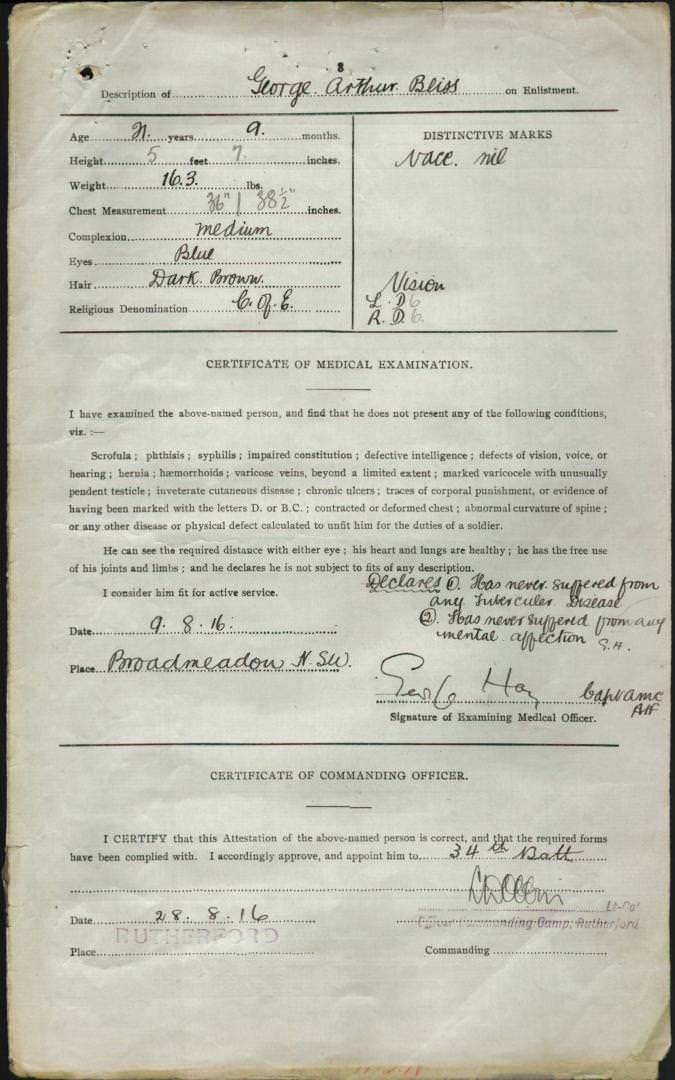 8
Description of George Arthur Bliss on Enlistment.
Age 21 years 9. months.
Height 5 feet 7 inches.
Weight 163. lbs.
Chest Measurement 36" / 38½" inches.
Complexion medium
Eyes Blue
Hair Dark Brown.
Religious Denomination C. of E.
DISTINCTIVE MARKS
Vacc. nil
Vision
L. D6
R. D.6.
CERTIFICATE OF MEDICAL EXAMINATION.
I have examined the above-named person, and find that he does not present any of the following conditions,
viz. :—
Scrofula ; phthisis ; syphilis ; impaired constitution ; defective intelligence ; defects of vision, voice, or
hearing ; hernia ; hæmorrhoids ; varicose veins, beyond a limited extent ; marked varicocele with unusually
pendent testicle ; inveterate cutaneous disease ; chronic ulcers ; traces of corporal punishment, or evidence of
having been marked with the letters D. or B.C. ; contracted or deformed chest ; abnormal curvature of spine ;
or any other disease or physical defect calculated to unfit him for the duties of a soldier.
He can see the required distance with either eye ; his heart and lungs are healthy ; he has the free use
of his joints and limbs ; and he declares he is not subject to fits of any description.
I consider him fit for active service.
Declares ①. Has never suffered from
any Tubercular Disease
②. Has never suffered from any
mental affection G.H.
Date 9. 8. 16.
Place Broadmeadow N.SW.
Geo Hay Capt AMC
AIF
Signature of Examining Medical Officer.
CERTIFICATE OF COMMANDING OFFICER.
I CERTIFY that this Attestation of the above-named person is correct, and that the required forms
have been complied with. I accordingly approve, and appoint him to 34th Batt
Lt-Col
Date 28. 8. 16
Officer Commanding Camp, Rutherford
RUTHERFORD
Place
Commanding